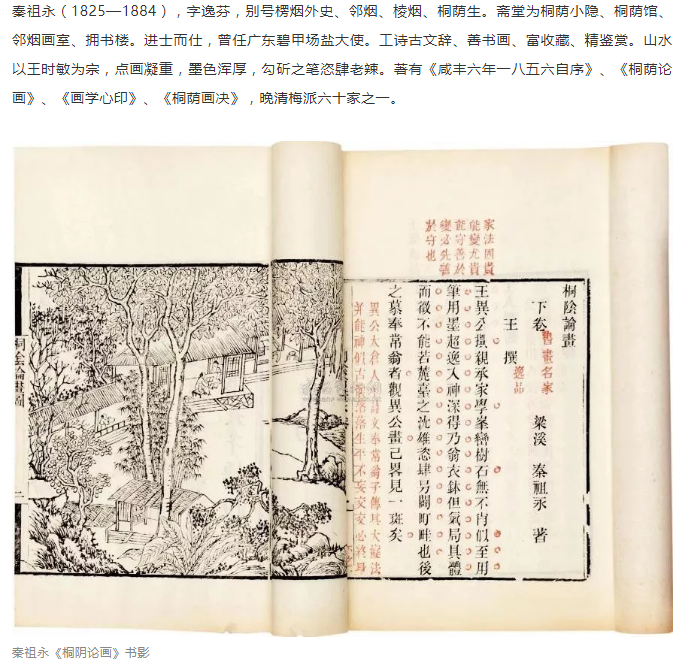 秦祖永（1825—1884），字逸芬，别号楞烟外史、邻烟、棱烟、桐荫生。斋堂为桐荫小隐、桐荫馆、
邻烟画室、拥书楼。进士而仕，曾任广东碧甲场盐大使。工诗古文辞、善书画、富收藏、精鉴赏。山水
以王时敏为宗，点画凝重，墨色浑厚，勾斫之笔恣肆老辣。著有《咸丰六年一八五六自序》、《桐荫论
画》、《画学心印》、《桐荫画决》，晚清梅派六十家之一。
家法固貴
能變尤貴
能守善於
變必先善
於守也
桐陰論畫
下卷 書畫名家 梁溪 秦祖永 著
王撰 逸品
王異公撰親承家學峯巒樹石無不肖似至用
筆用墨超逸入神深得乃翁衣鉢但氣局具體
而微不能若麓臺之沈雄恣肆另闢町畦也後
之慕奉常翁者觀異公畫已畧見一斑矣
異公太倉人詩文奉常翁子傳其大癡法
桐陰論畫圖
二
秦祖永《桐阴论画》书影